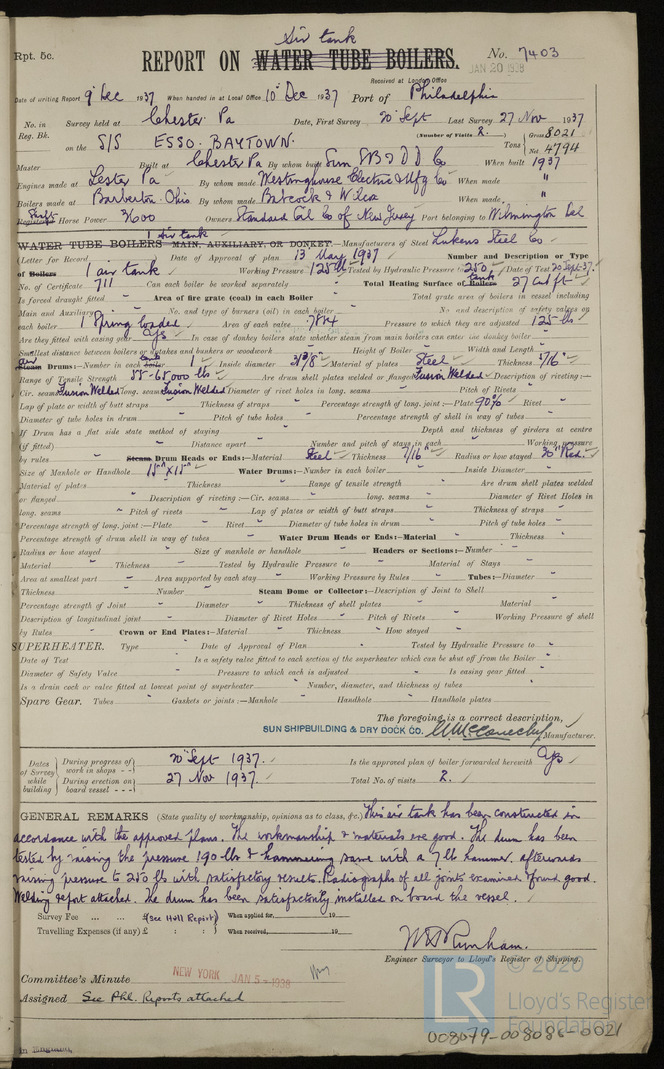 Air tank
Rpt. 5c.
REPORT ON WATER TUBE BOILERS. No. 7403
JAN 20 1938
Received at London Office
Date of writing Report 9 Dec 1937 When handed in at Local Office 10 Dec 1937 Port of Philadelphia
No. in Survey held at Chester Pa Date, First Survey 20 Sept Last Survey 27 Nov 1937
Reg. Bk. (Number of Visits 2.)
on the S/S ESSO. BAYTOWN. Tons Gross 8021 Net 4794
Master Built at Chester Pa By whom built Sun SB & DD Co When built 1937
Engines made at Lester Pa By whom made Westinghouse Electric & Mfg Co When made "
Boilers made at Barberton. Ohio By whom made Babcock & Wilcox When made "
Registered Shaft Horse Power 3600 Owners Standard Oil Co of New Jersey Port belonging to Wilmington Del
1 air tank
WATER TUBE BOILERS MAIN, AUXILIARY, OR DONKEY.—Manufacturers of Steel Lukens Steel Co
(Letter for Record ) Date of Approval of plan 13 May 1937 Number and Description or Type
of Boilers 1 air tank Working Pressure 125 lb Tested by Hydraulic Pressure to 250 Date of Test 20 Sept-37.
No. of Certificate 711 Can each boiler be worked separately Total Heating Surface of Boilers tank 27 cub ft
Is forced draught fitted Area of fire grate (coal) in each Boiler Total grate area of boilers in vessel including
Main and Auxiliary No. and type of burners (oil) in each boiler No. and description of safety valves on
each boiler 1 Spring loaded Area of each valve .7854 Pressure to which they are adjusted 125 lbs
Are they fitted with easing gear yes In case of donkey boilers state whether steam from main boilers can enter the donkey boiler
Smallest distance between boilers or uptakes and bunkers or woodwork Height of Boiler Width and Length
Steam air Drums:—Number in each boiler 1 Inside diameter Material of plates Steel Thickness 7/16"
Range of Tensile Strength 55-65000 lbs Are drum shell plates welded or flanged Fusion Welded Description of riveting:—
Cir. seams Fusion Welded long. seams Fusion Welded Diameter of rivet holes in long. seams Pitch of Rivets
Lap of plate or width of butt straps Thickness of straps Percentage strength of long. joint:—Plate 90% Rivet
Diameter of tube holes in drum Pitch of tube holes Percentage strength of shell in way of tubes
If Drum has a flat side state method of staying Depth and thickness of girders at centre
(if fitted) Distance apart Number and pitch of stays in each Working pressure
by rules Steam Drum Heads or Ends:—Material Steel Thickness 7/16" Radius or how stayed 30" Rad.
Size of Manhole or Handhole 11" x 15" Water Drums:—Number in each boiler Inside Diameter
Material of plates Thickness Range of tensile strength Are drum shell plates welded
or flanged Description of riveting:—Cir. seams long. seams Diameter of Rivet Holes in
long. seams Pitch of rivets Lap of plates or width of butt straps Thickness of straps
Percentage strength of long. joint:—Plate Rivet Diameter of tube holes in drum Pitch of tube holes
Percentage strength of drum shell in way of tubes Water Drum Heads or Ends:—Material Thickness
Radius or how stayed Size of manhole or handhole Headers or Sections:—Number
Material Thickness Tested by Hydraulic Pressure to Material of Stays
Area at smallest part Area supported by each stay Working Pressure by Rules Tubes:—Diameter
Thickness Number Steam Dome or Collector:—Description of Joint to Shell
Percentage strength of Joint Diameter Thickness of shell plates Material
Description of longitudinal joint Diameter of Rivet Holes Pitch of Rivets Working Pressure of shell
by Rules Crown or End Plates:—Material Thickness How stayed
SUPERHEATER. Type Date of Approval of Plan Tested by Hydraulic Pressure to
Date of Test Is a safety valve fitted to each section of the superheater which can be shut off from the Boiler
Diameter of Safety Valve Pressure to which each is adjusted Is easing gear fitted
Is a drain cock or valve fitted at lowest point of superheater Number, diameter, and thickness of tubes
Spare Gear. Tubes Gaskets or joints:—Manhole Handhole Handhole plates
The foregoing is a correct description,
SUN SHIPBUILDING & DRY DOCK CO. Manufacturer.
Dates of Survey while building During progress of work in shops 20 Sept 1937. Is the approved plan of boiler forwarded herewith Yes
During erection on board vessel 27 Nov 1937. Total No. of visits 2.
GENERAL REMARKS (State quality of workmanship, opinions as to class, &c.) This air tank has been constructed in
accordance with the approved plans. The workmanship & materials are good. The drum has been
tested by raising the pressure 190 lbs & hammering same with a 7 lb hammer. afterwards
raising pressure to 250 lbs with satisfactory results. Radiographs of all joints examined & found good.
Welding report attached. The drum has been satisfactorily installed on board the vessel.
Survey Fee £ (See Hull Report) When applied for, 19
Travelling Expenses (if any) £ : : When received, 19
Engineer Surveyor to Lloyd's Register of Shipping.
Committee's Minute NEW YORK JAN 5 - 1938
Assigned See Phl. Reports attached
© 2020
LR
Lloyd's Register
Foundation
008079-008086-0021